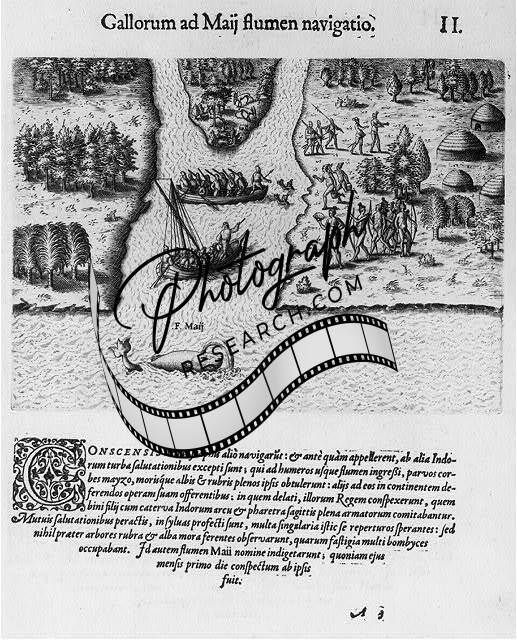 Gallorum ad Maij flumen navigatio.
II.
F. Maij
Photograph
RESEARCH.COM
CONSCENSIS alio navigarũt: & antè quàm appellerent, ab alia Indo-
rum turba salutationibus excepti sunt; qui ad humeros usque flumen ingressi, parvos cor-
bes mayzo, morisque albis & rubris plenos ipsis obtulerunt: alijs ad eos in continentem de-
ferendos operam suam offerentibus: in quem delati, illorum Regem conspexerunt, quem
bini filij cum caterva Indorum arcu & pharetra sagittis plena armatorum comitabantur.
Mutuis salutationibus peractis, in sylvas profecti sunt, multa singularia istic se reperturos sperantes: sed
nihil præter arbores rubra & alba mora ferentes observarunt, quarum fastigia multi bombyces
occupabant. Id autem flumen Maii nomine indigetarunt; quoniam ejus
mensis primo die conspectum ab ipsis
fuit.